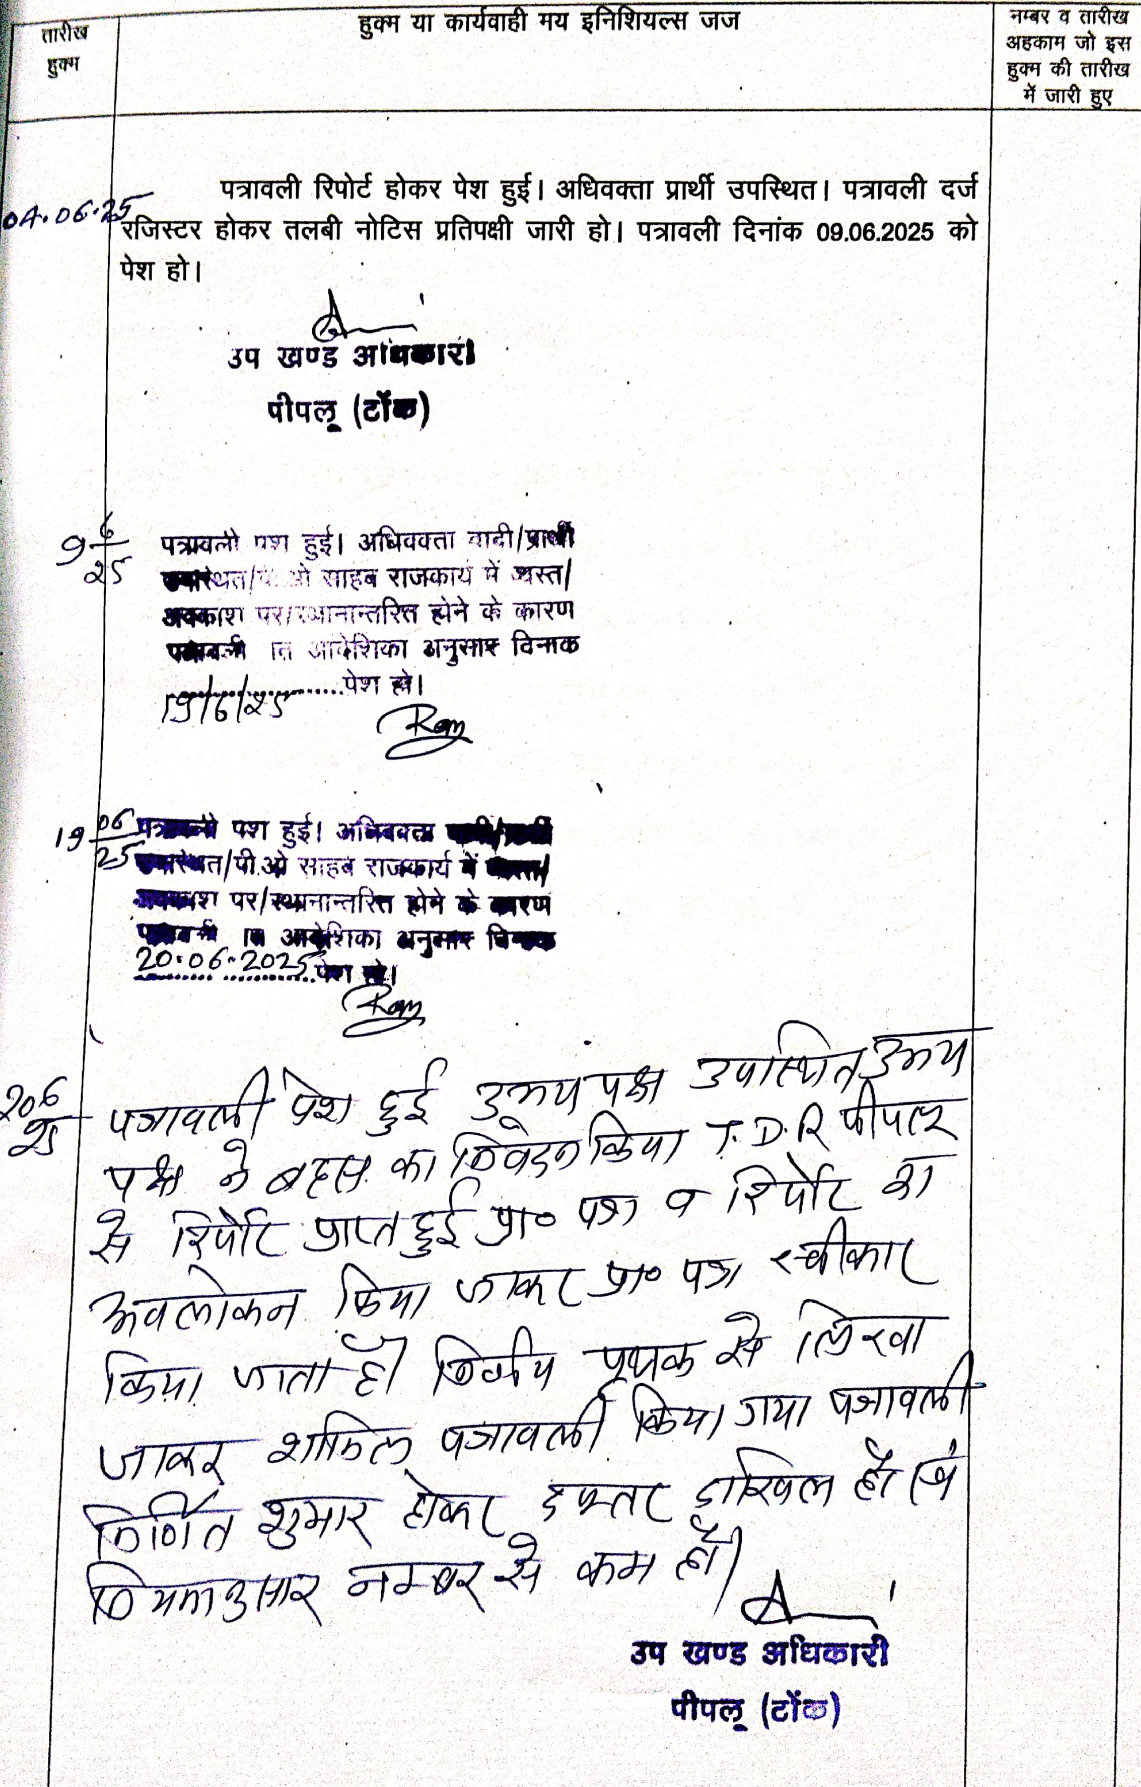 तारीख
हुक्म
हुक्म या कार्यवाही मय इनिशियल्स जज
नम्बर व तारीख
अहकाम जो इस
हुक्म की तारीख
में जारी हुए
04.06.25
पत्रावली रिपोर्ट होकर पेश हुई। अधिवक्ता प्रार्थी उपस्थित। पत्रावली दर्ज
रजिस्टर होकर तलबी नोटिस प्रतिपक्षी जारी हो। पत्रावली दिनांक 09.06.2025 को
पेश हो।
उप खण्ड अधिकारी
पीपलू (टोंक)
9 6/25
पत्रावली पेश हुई। अधिवक्ता वादी/प्रार्थी
उपस्थित/पी.ओ साहब राजकार्य में व्यस्त/
अवकाश पर/स्थानान्तरित होने के कारण
पत्रावली आदेशिका अनुसार दिनांक
19/6/25 पेश हो।
Ram
19 06/25
पत्रावली पेश हुई। अधिवक्ता
उपस्थित/पी.ओ साहब राजकार्य में व्यस्त/
अवकाश पर/स्थानान्तरित होने के कारण
पत्रावली आदेशिका अनुसार दिनांक
20.06.2025 पेश हो।
Ram
20 6/25
पत्रावली पेश हुई उभय पक्ष उपस्थित उभय
पक्ष ने बहस का निवेदन किया T.D.R पीपलू
से रिपोर्ट प्राप्त हुई प्रा० पत्र व रिपोर्ट का
अवलोकन किया जाकर प्रा० पत्र स्वीकार
किया जाता है। निर्णय पृथक से लिखा
जाकर शामिल पत्रावली किया गया पत्रावली
निर्णित शुमार होकर दफ्तर दाखिल हो एवं
नियमानुसार नम्बर से कम हो।
उप खण्ड अधिकारी
पीपलू (टोंक)